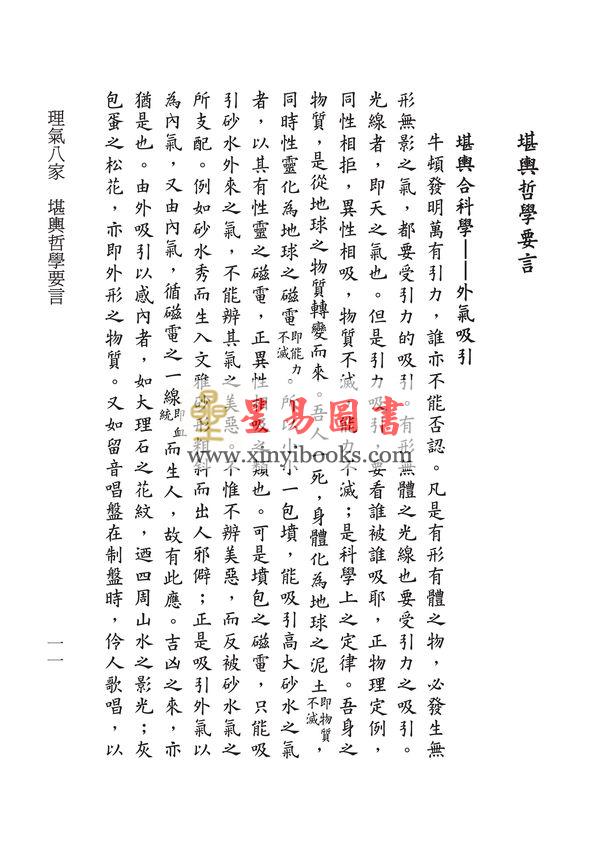 堪輿哲學要言
堪輿合科學——外氣吸引
牛頓發明萬有引力，誰亦不能否認。凡是有形有體之物，必發生無
形無影之氣，都要受引力的吸引。有形無體之光線也要受引力之吸引。
光線者，即天之氣也。但是引力吸引，要看誰被誰吸耶，正物理定例，
同性相拒，異性相吸，物質不滅，能力不滅；是科學上之定律。吾身之
物質，是從地球之物質轉變而來。吾人一死，身體化為地球之泥土即物質不滅，
同時性靈化為地球之磁電即能力不滅。所以小小一包墳，能吸引高大砂水之氣
者，以其有性靈之磁電，正異性相吸之類也。可是墳包之磁電，只能吸
引砂水外來之氣，不能辨其氣之美惡。不惟不辨美惡，而反被砂水氣之
所支配。例如砂水秀而生人文雅砂形粗斜而出人邪僻；正是吸引外氣以
為內氣，又由內氣，循磁電之一線即血統而生人，故有此應。吉凶之來，亦
猶是也。由外吸引以感內者，如大理石之花紋，迺四周山水之影光；灰
包蛋之松花，亦即外形之物質。又如留音唱盤在制盤時，伶人歌唱，以
理氣八家　堪輿哲學要言
一一
星易圖書
www.xinyibooks.com